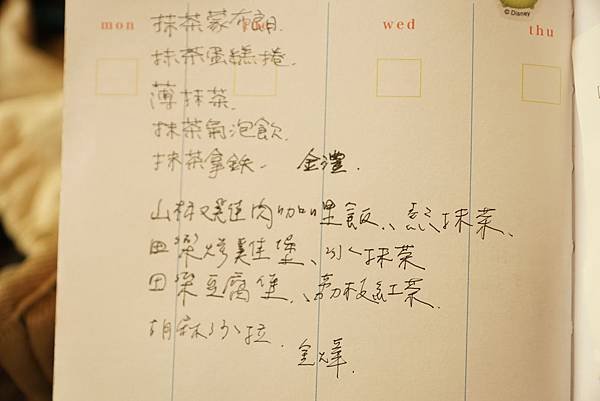 © Disney
mon wed thu
抹茶蒙布朗.
抹茶蛋糕捲.
薄抹茶.
抹茶氣泡飲.
抹茶拿鉄. 金澧.
雞肉咖哩飯、熱抹茶、
田樂烤雞堡、冰抹茶
田樂豆腐堡、紅茶.
胡麻沙拉.